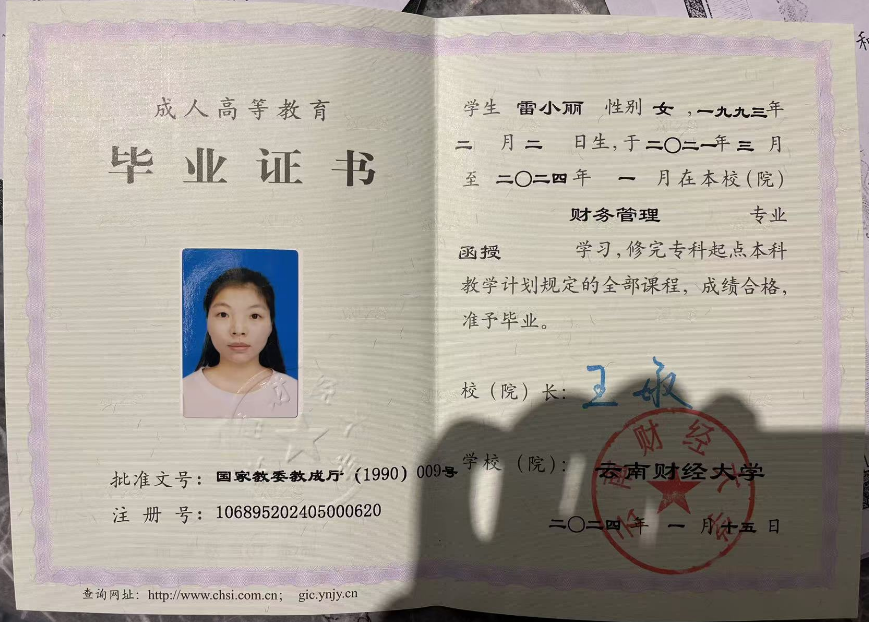 成人高等教育
毕业证书
批准文号：国家教委教成厅（1990）009号
注册号：106895202405000620
查询网址：http://www.chsi.com.cn； gic.ynjy.cn
学生 雷小丽 性别 女，一九九三年
二 月 二 日生，于 二〇二一年 三 月
至 二〇二四年 一 月在本校（院）
财务管理 专业
函授 学习，修完专科起点本科
教学计划规定的全部课程，成绩合格，
准予毕业。
校（院）长：王敏
学校（院）：云南财经大学
二〇二四年 一 月十五日
云南财经大学